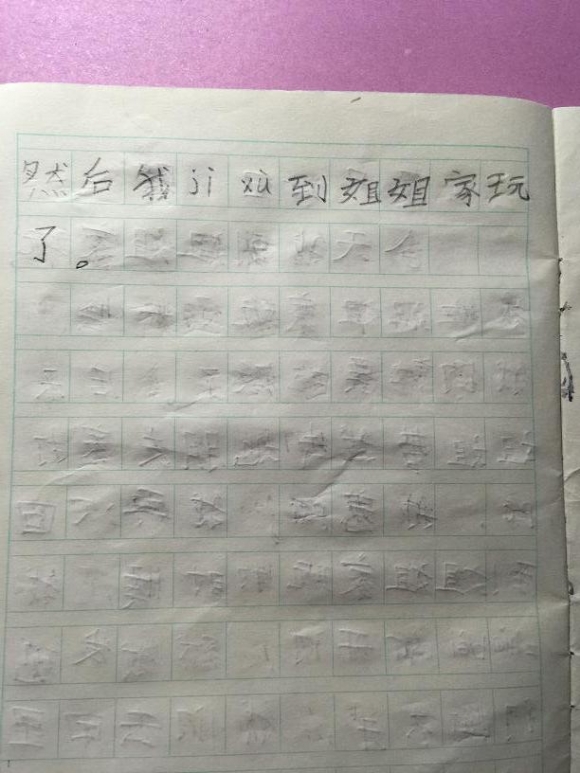 然后我ji xu到姐姐家玩
了。